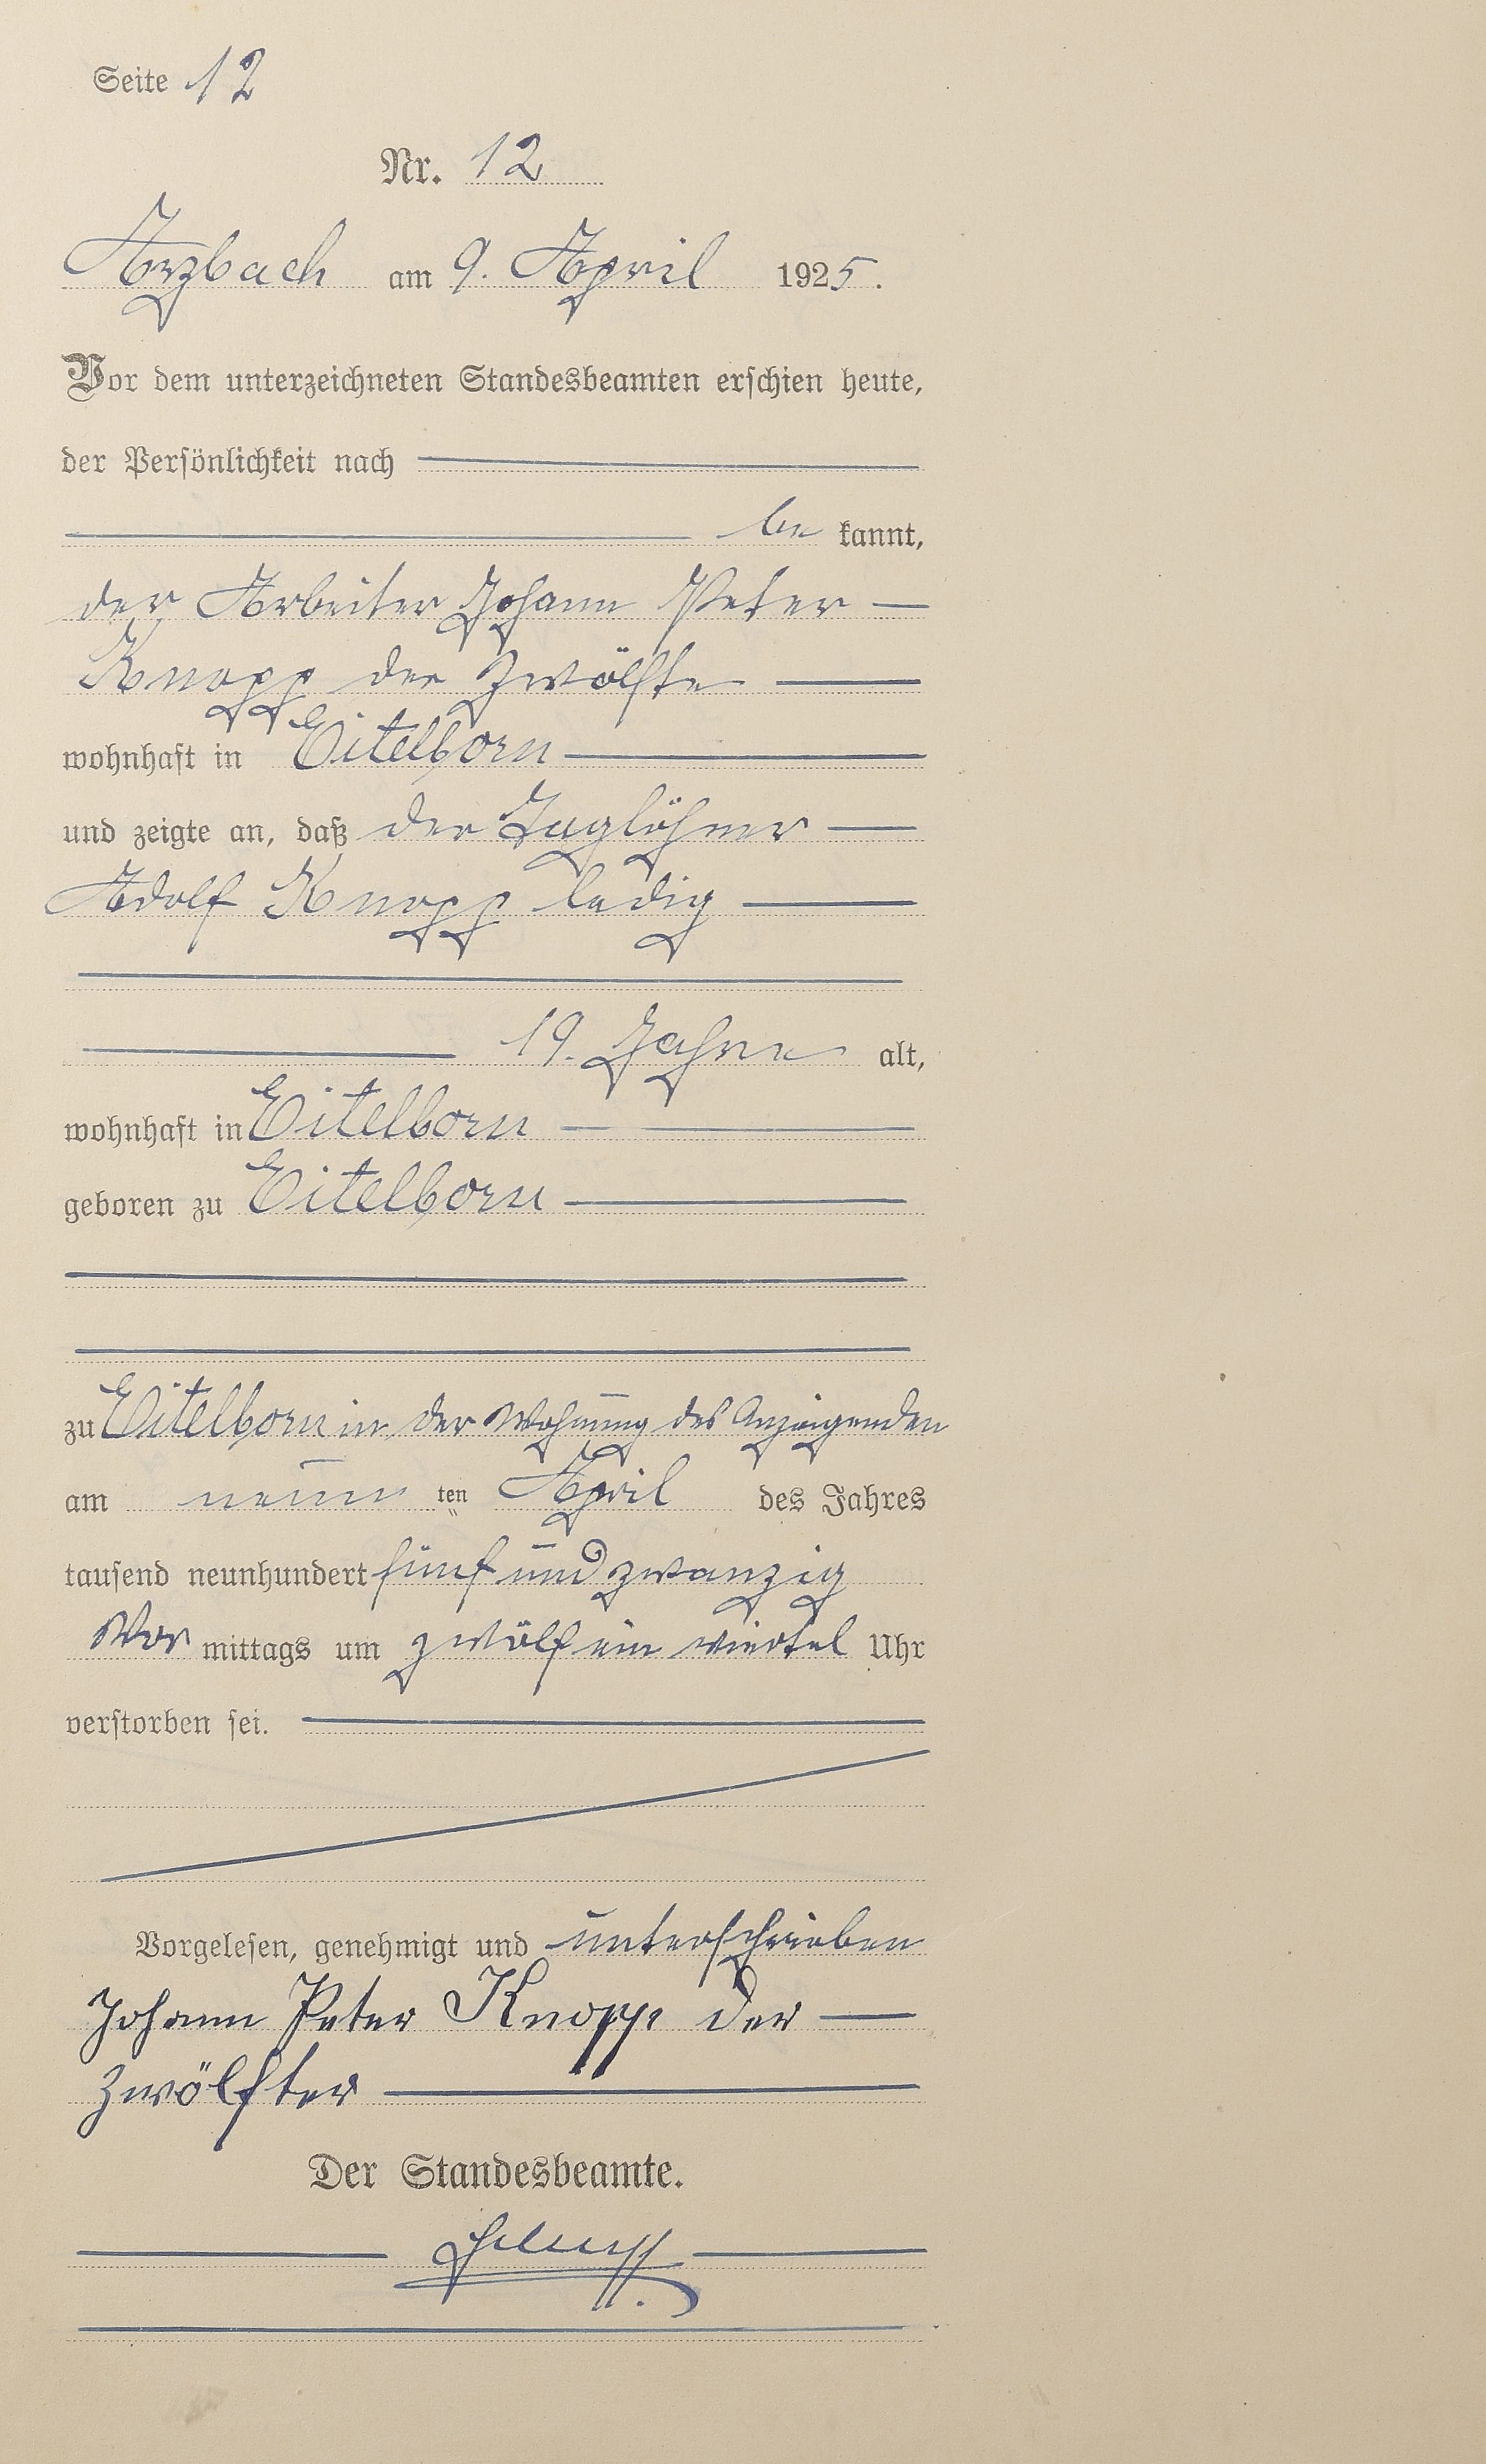 Seite 12
Nr. 12
Arzbach am 9. April 1925.
Vor dem unterzeichneten Standesbeamten erschien heute,
der Persönlichkeit nach
be kannt,
der Arbeiter Johann Peter
Knopp der Zwölfte
wohnhaft in Eitelborn
und zeigte an, daß der Taglöhner
Adolf Knopp ledig
19. Jahre alt,
wohnhaft in Eitelborn
geboren zu Eitelborn
zu Eitelborn in der Wohnung des Anzeigenden
am neun ten April des Jahres
tausend neunhundert fünf und zwanzig
Vor mittags um zwölf ein viertel Uhr
verstorben sei.
Vorgelesen, genehmigt und unterschrieben
Johann Peter Knopp der
Zwölfter
Der Standesbeamte.